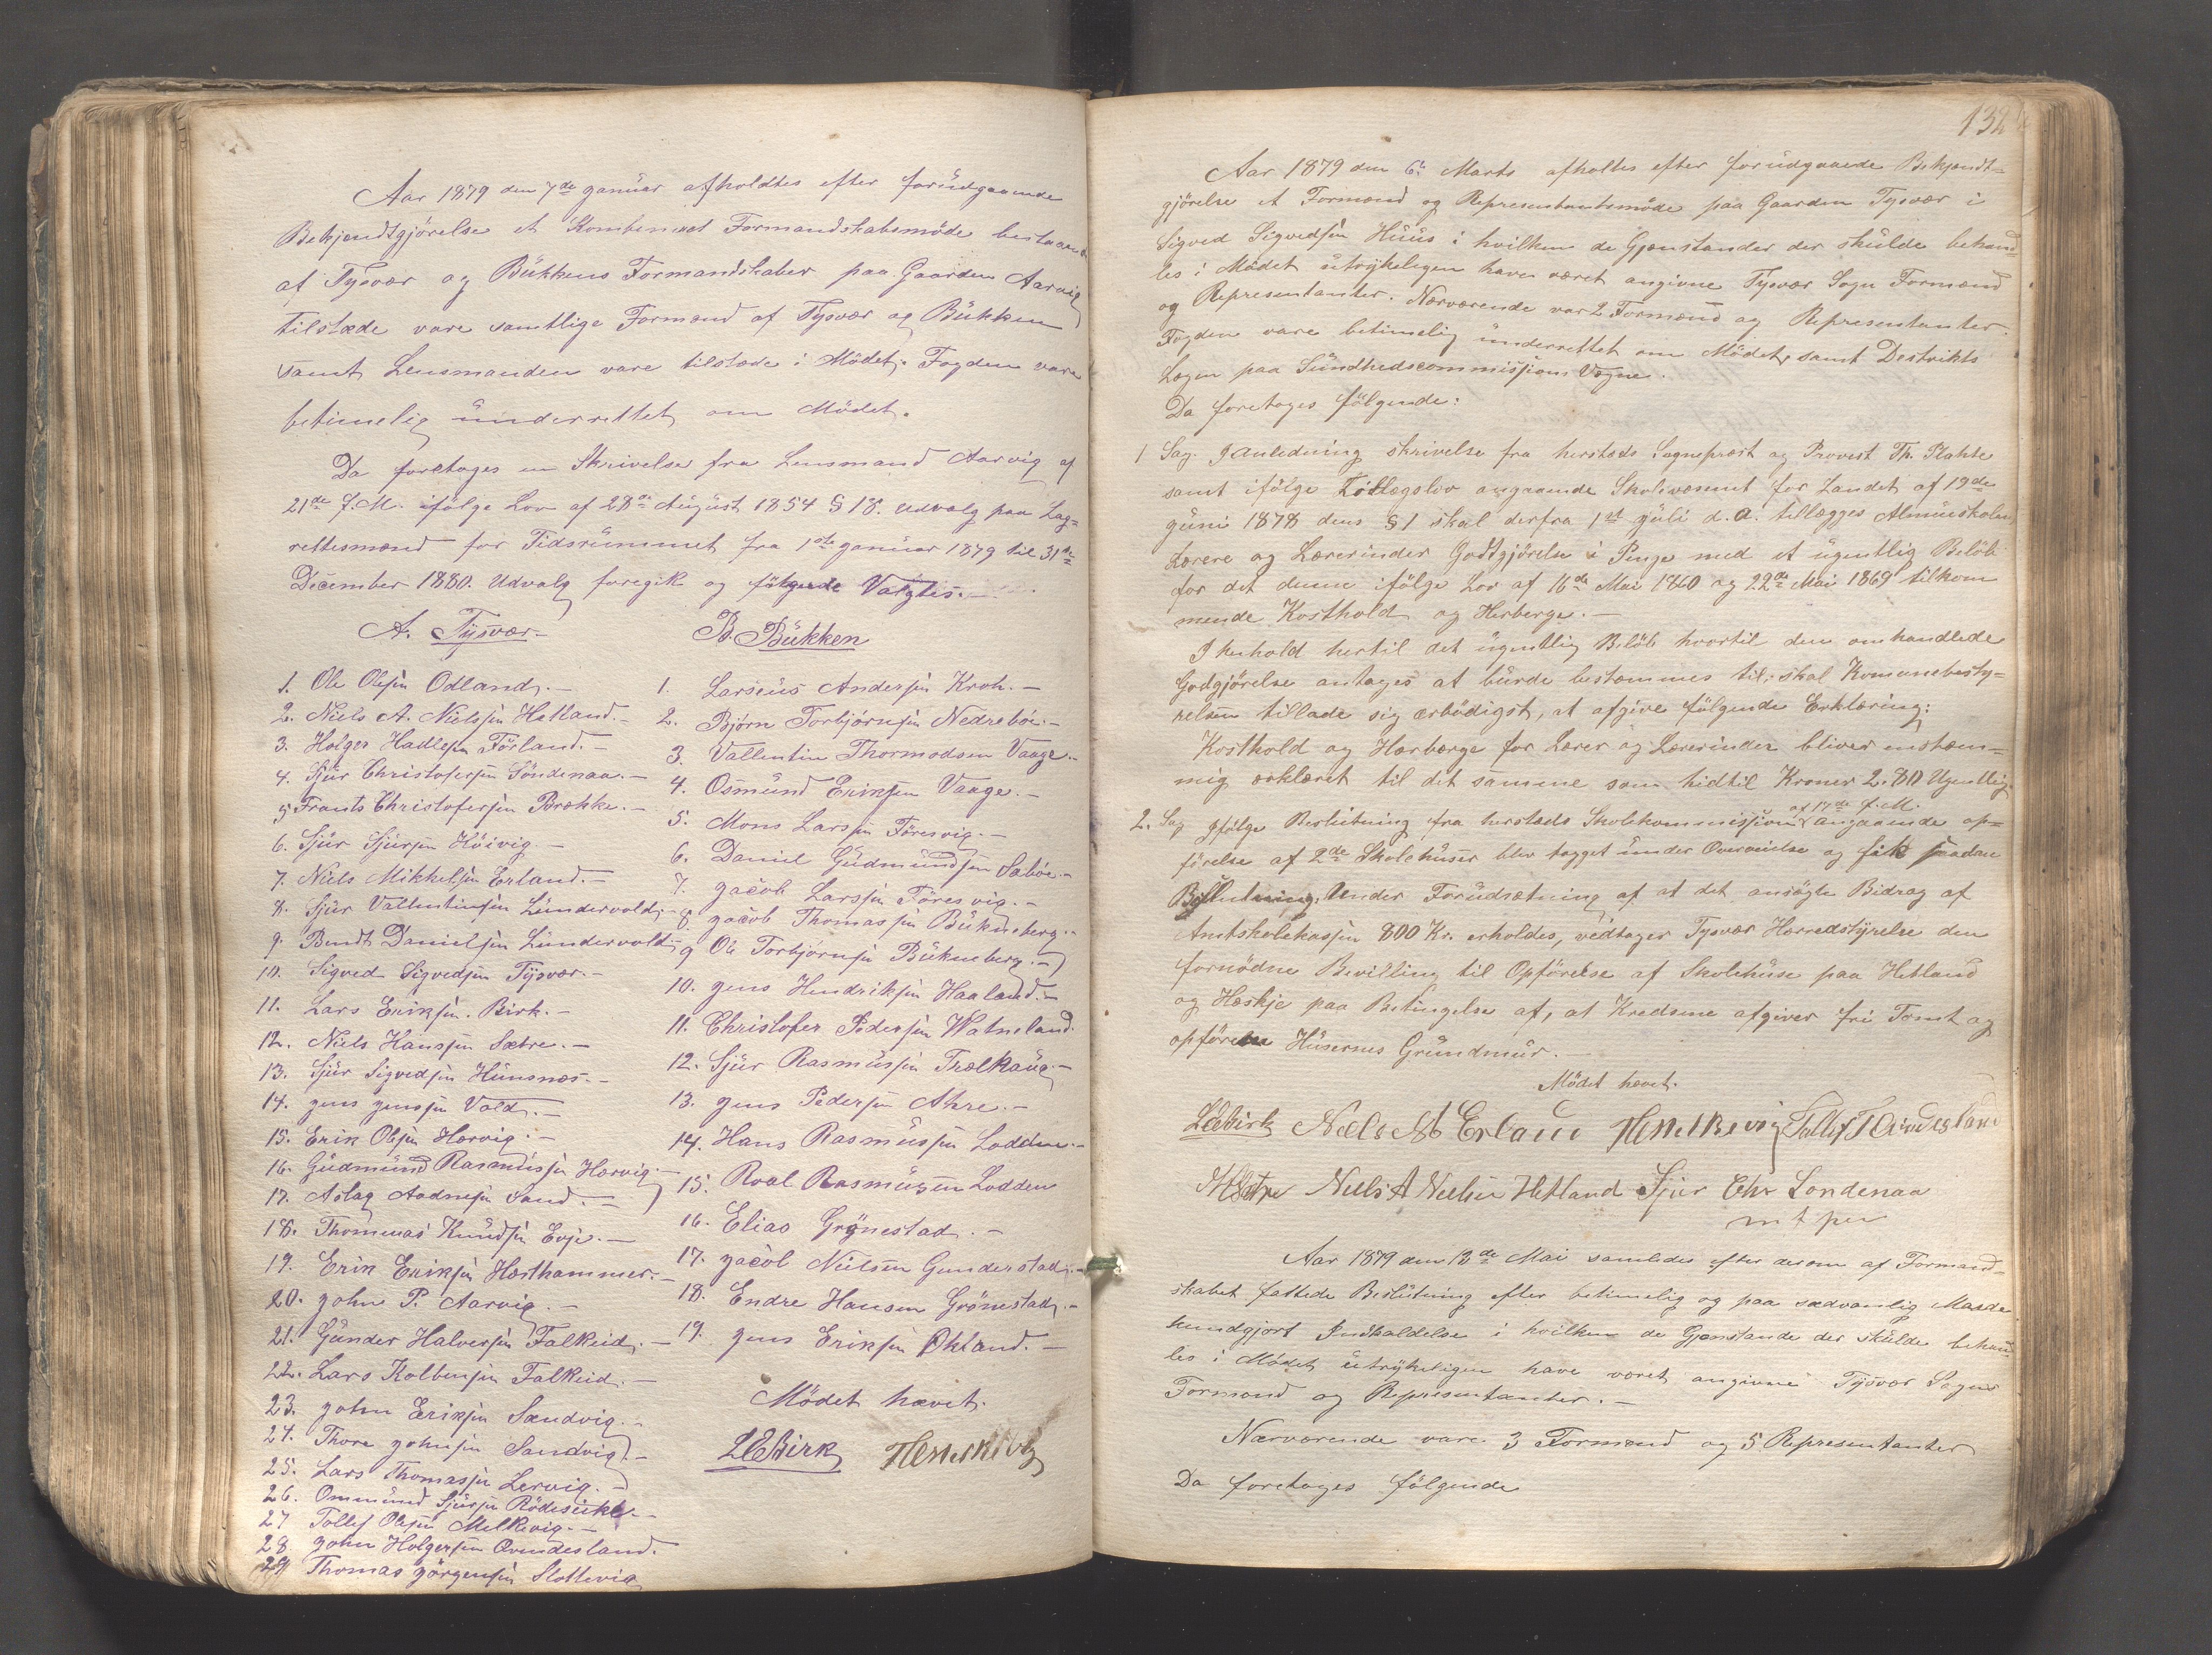 Aar 1879 den 7de Januar afholdtes efter forudgaaende
Bekjendtgjörelse et Kombineret Formandskabsmöde bestaaende
af Tysvær og Bükkens Formandskaber paa Gaarden Aarvig
Tilstæde vare samtlige Formænd af Tysvær og Bükken
samt Lensmanden vare tilstæde i Mödet. Fogden vare
betimelig ünderrettet om Mödet.
Da foretoges en Skrivelse fra Lensmand Aarvig af
21de f.M. ifölge Lov af 28de August 1854 § 18. Udvalg paa Lag=
rettesmænd for Tidsrümmet fra 1ste Januar 1879 til 31te
December 1880. Udvalg foregik og fölgende Valgtes.
A. Tysvær.
1. Ole Olsen Odland.
2. Niels A. Nielsen Hetland.
3. Holger Hadlesen Förland.
4. Sjur Christofersen Söndenaa.
5. Frants Christofersen Brække.
6. Sjür Sjürsen Höivig.
7. Niels Mikkelsen Erland.
8. Sjür Vallentinsen Lündervold.
9. Bendt Danielsen Lündervold
10. Sigved Sigvedsen Tysvær.
11. Lars Eriksen. Birk.
12. Niels Hansen Sætre.
13. Sjür Sigvedsen Hünsnæs.
14. Jens Jenssen Vold.
15. Erik Olsen Hervig.
16. Güdmünd Rasmüssen Hervig.
17. Aslag Aadnesen Sand.
18. Thommas Knüdsen Evje.
19. Erik Eriksen Hesthammer.
20. John P. Aarvig.
21. Günder Halversen Falkeid.
22. Lars Kolbensen Falkeid.
23. John Eriksen Sandvig.
24. Thore Johnsen Sandvig.
25. Lars Thomassen Lervig.
26. Ommünd Sjürsen Rödseike.
27 Tollef Olsen Melkevig.
28. John Holgersen Qvindesland.
29 Thomas Jörgensen Slottevig
B. Bükken
1. Larseus Andersen Kroh.
2. Björn Torbjörnsen Nedrebö.
3. Vallentin Thormodsen Vaage.
4. Osmünd Eriksen Vaage.
5. Mons Larssen Föresvig.
6. Daniel Güdmündsen Sabö.
7. Jacob Larssen Föresvig.
8 Jacob Thomassen Bükneberg.
9 Ole Torbjörnsen Bükneberg.
10. Jens Hendriksen Haaland.
11. Christofer Pedersen Watneland.
12. Sjür Rasmüssen Trælhaüg.
13. Jens Pedersen Ahre.
14. Hans Rasmüssen Lodden.
15. Roal Rasmüsen Lodden
16. Elias Grönestad.
17. Jacob Nielsen Gunderstad.
18. Endre Hansen Grönestad.
19. Jens Eriksen Økland.
Mödet hævet.
LEBirk
132
Aar 1879 den 6te Marts afholtes efter forudgaaende Bekjendt=
gjörelse et Formænd og Representantsmöde paa Gaarden Tysvær i
Sigved Sigvedsen Hüüs i hvilken de Gjenstander der skülde behand
les i Mödet ütrykeligen haver været angivne Tysvær Sogn Formænd
og Representanter. Nærværende var 2 Formænd og Representanter.
Fogden vare betimelig ünderrettet om Mödet, samt Destrikts
Lægen paa Sündhedscommissions Vegne.
Da foretoges fölgende:
1 Sag. I Anledning skrivelse fra herstæds Sognepræst og Provest Th. Plahte
samt ifölge Tillægslov angaaende Skolevæsenet for Landet af 19de
Juni 1878 dens § 1 skal derfra 1st Juli d. A. tillægges Almüeskolens
Lærere og Lærerinder Godtgjörelse i Penge med et ügentlig Belöb
for det denne ifölge Lov af 16de Mai 1860 og 22de Mai 1869 tilkom
mende Kosthold og Herberge.
I henhold hertil det ügentlig Belöb hvortil den omhandlede
Godgjörelse antages at bürde bestemmes til, skal Komunebesty=
relsen tillade sig ærbödigst, at afgive fölgende Erklæring:
Kosthold og Herberge for Lærer og Lærerinder bliver enstem=
mig erklæret til det samme som hidtil Kroner 2.80 Ugentlig
2. Sag Ifölge Beslütning fra herstæds Skolekommission af 17de f.M. angaaende op=
förelse af 2de Skolehüser blev tagget ünder Overveielse og fik saadan
Beslutning. Under Forüdsætning af at det ansögte Bidrag af
Amtskolekassen 800 Kr. erholdes, vedtager Tysvær Herredstyrelse den
fornödne Bevilling til Opförelse af Skolehüse paa Hetland
og Heskje paa Betingelse af, at Kredsene afgiver fri Tomt og
opförer Hüsernes Gründmür.
Mödet hævet.
LEBirk Niels M Erland Tollef T Qvindesland
NHSætre Niels A Nielsen Hetland Sjur Chr Söndenaa
m f pen
Aar 1879 den 12de Mai samledes efter desom af Formand=
skabet fattede Beslütning efter betimelig og paa sædvanlig Maade
kundgjort Indkaldelse i hvilken de Gjenstande der skülde behand
les i Mödet ütrykeligen have været angivne Tysvær Sogns
Formænd og Representanter.
Nærværende vare 3 Formænd og 5 Representanter
Da foretoges fölgende